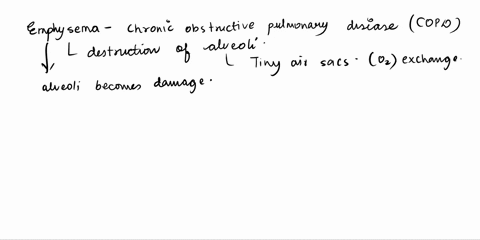 Emphysema - chronic obstructive pulmonary disease (COPD)
destruction of alveoli.
Tiny air sacs. (O2) exchange.
alveoli becomes damage.